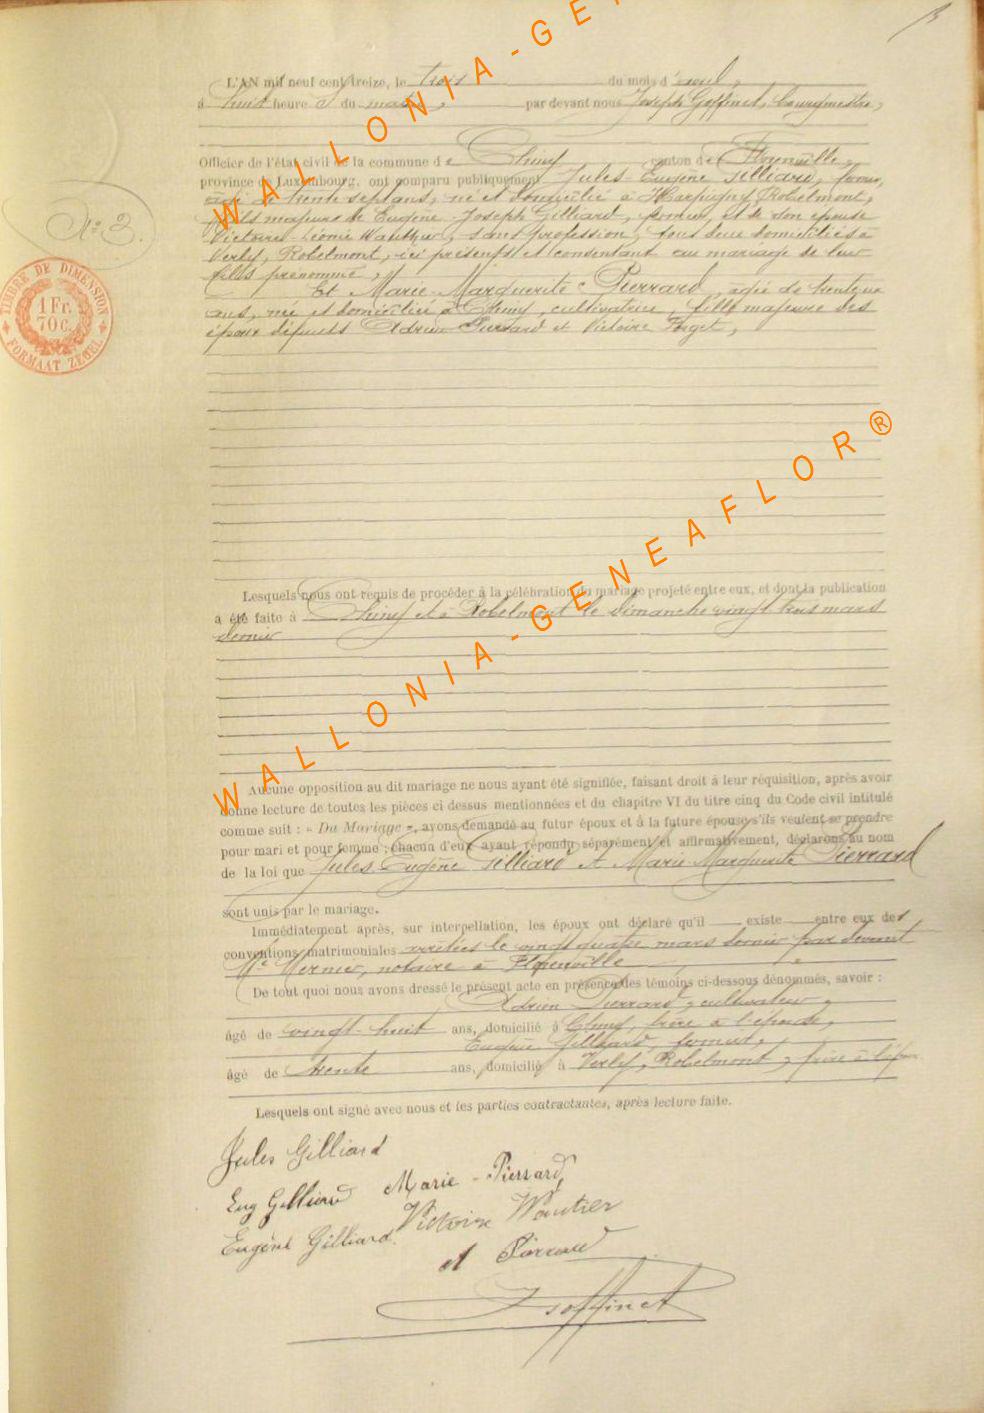 3
L'AN mil neuf cent treize, le trois du mois d'avril,
à huit heures du matin, par devant nous Joseph Goffinet, bourgmestre,
Officier de l'état civil de la commune de Chiny canton de Florenville,
province de Luxembourg, ont comparu publiquement Jules Eugène Gilliard, fermier,
âgé de trente sept ans, né et domicilié à Harpigny, Robelmont,
fils majeur de Eugène-Joseph Gilliard, fermier, et de son épouse
Victoire-Léonie Wauthier, sans profession, tous deux domiciliés à
Verly, Robelmont, ici présents et consentant au mariage de leur
fils prénommé,
Et Marie-Marguerite Pierrard, agée de trente un
ans, née et domiciliée à Chiny, cultivateur, fille majeure des
époux défunts Adrien Pierrard et Victoire Forget,
N° 3.
TIMBRE DE DIMENSION
1 Fr.
70 c.
FORMAAT ZEGEL
Lesquels nous ont requis de procéder à la célébration du mariage projeté entre eux, et dont la publication
a été faite à Chiny et à Robelmont le dimanche vingt trois mars
dernier
Aucune opposition au dit mariage ne nous ayant été signifiée, faisant droit à leur réquisition, après avoir
donne lecture de toutes les pièces ci dessus mentionnées et du chapitre VI du titre cinq du Code civil intitulé
comme suit : « Du Mariage », avons demandé au futur époux et à la future épouse s'ils veulent se prendre
pour mari et pour femme ; chacun d'eux ayant répondu séparément et affirmativement, déclarons au nom
de la loi que Jules Eugène Gilliard et Marie Marguerite Pierrard
sont unis par le mariage.
Immédiatement après, sur interpellation, les époux ont déclaré qu'il existe entre eux des
conventions matrimoniales arrêtées le vingt quatre mars dernier par devant
Me Mernier, notaire à Florenville
De tout quoi nous avons dressé le présent acte en présence des témoins ci-dessous dénommés, savoir :
Adrien Pierrard, cultivateur,
âgé de vingt-huit ans, domicilié à Chiny, frère à l'épouse,
Eugène Gilliard, fermier,
âgé de trente ans, domicilié à Verly, Robelmont, frère à l'époux
Lesquels ont signé avec nous et les parties contractantes, après lecture faite.
Jules Gilliard
Eug Gilliard Marie-Pierrard
Eugène Gilliard Victoire Wautier
A Pierrard
J Goffinet
WALLONIA-GE
WALLONIA-GENEAFLOR®